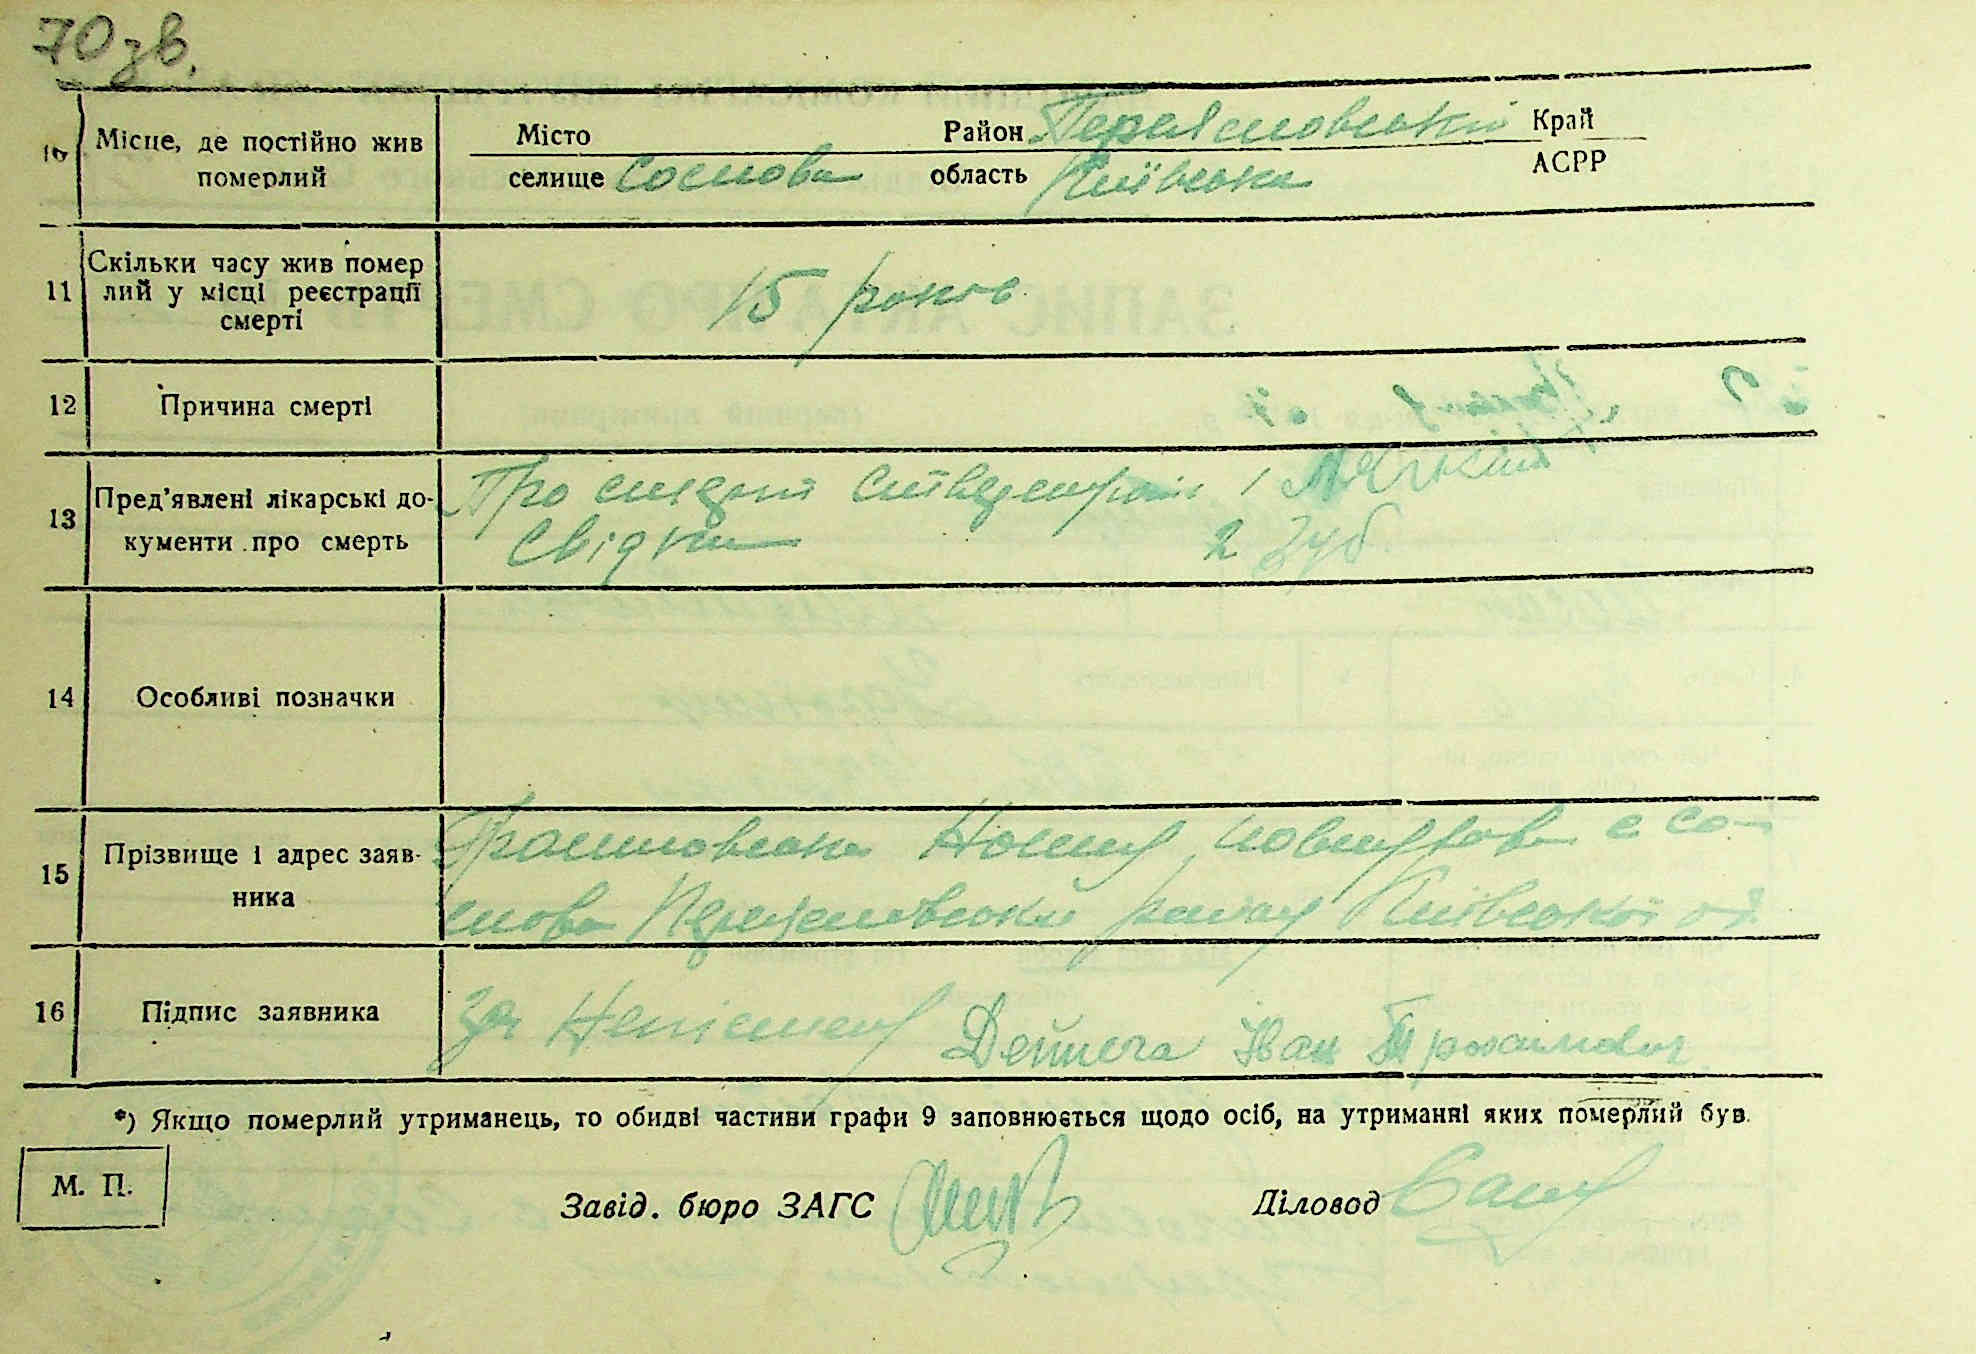 70зв.
10 Місце, де постійно жив померлий Місто Район Переясловський Край
селище Соснова область Київська АСРР
11 Скільки часу жив помер
лий у місці реєстрації
смерті
15 років
12 Причина смерті
13 Пред'явлені лікарські до-
кументи про смерть
Про смерть 1
Свідки 2 Зуб
14 Особливі позначки
15 Прізвище і адрес заяв-
ника
с Со-
снова Переясловський району Київської об
16 Підпис заявника
за Дейнега Іван Трохимович
*) Якщо померлий утриманець, то обидві частини графи 9 заповнюється щодо осіб, на утриманні яких померлий був.
М. П.
Завід. бюро ЗАГС Діловод